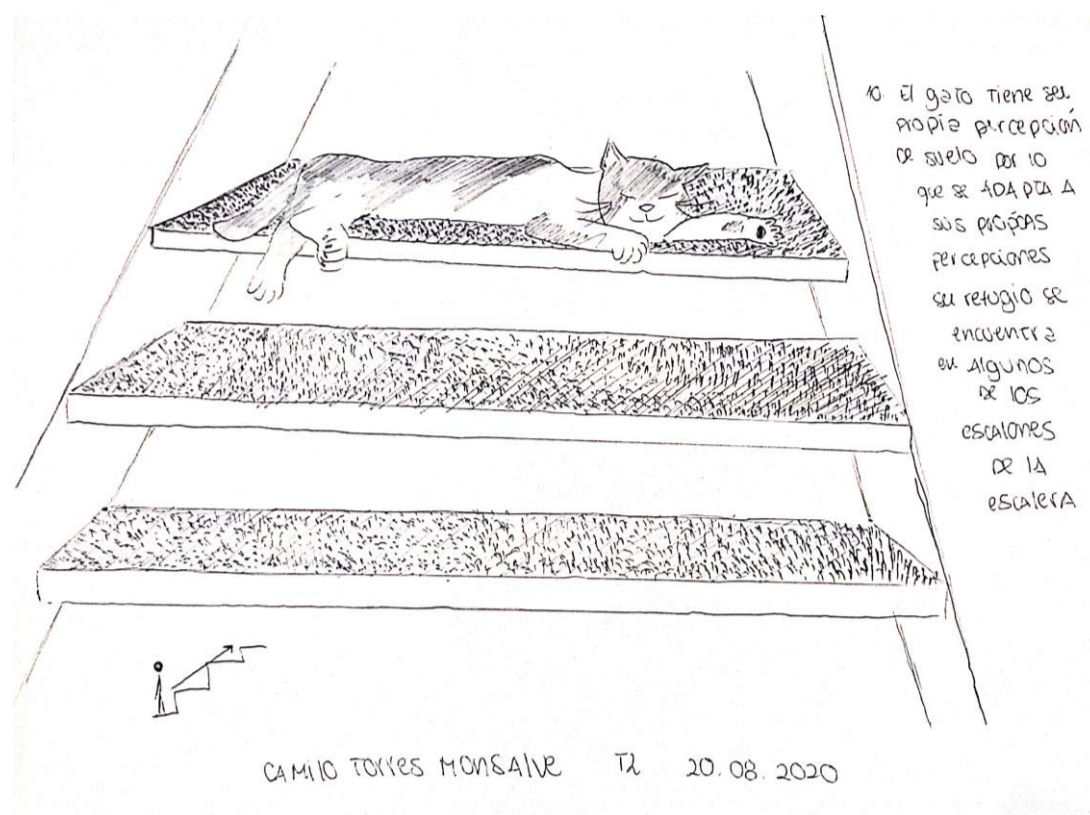 10. El gato tiene su
propia percepción
de suelo por lo
que se ADAPTA A
sus propias
percepciones
su refugio se
encuentra
en Algunos
de los
escalones
De lA
escalera
CAMilO TORRES MONSAlVE T2 20.08.2020